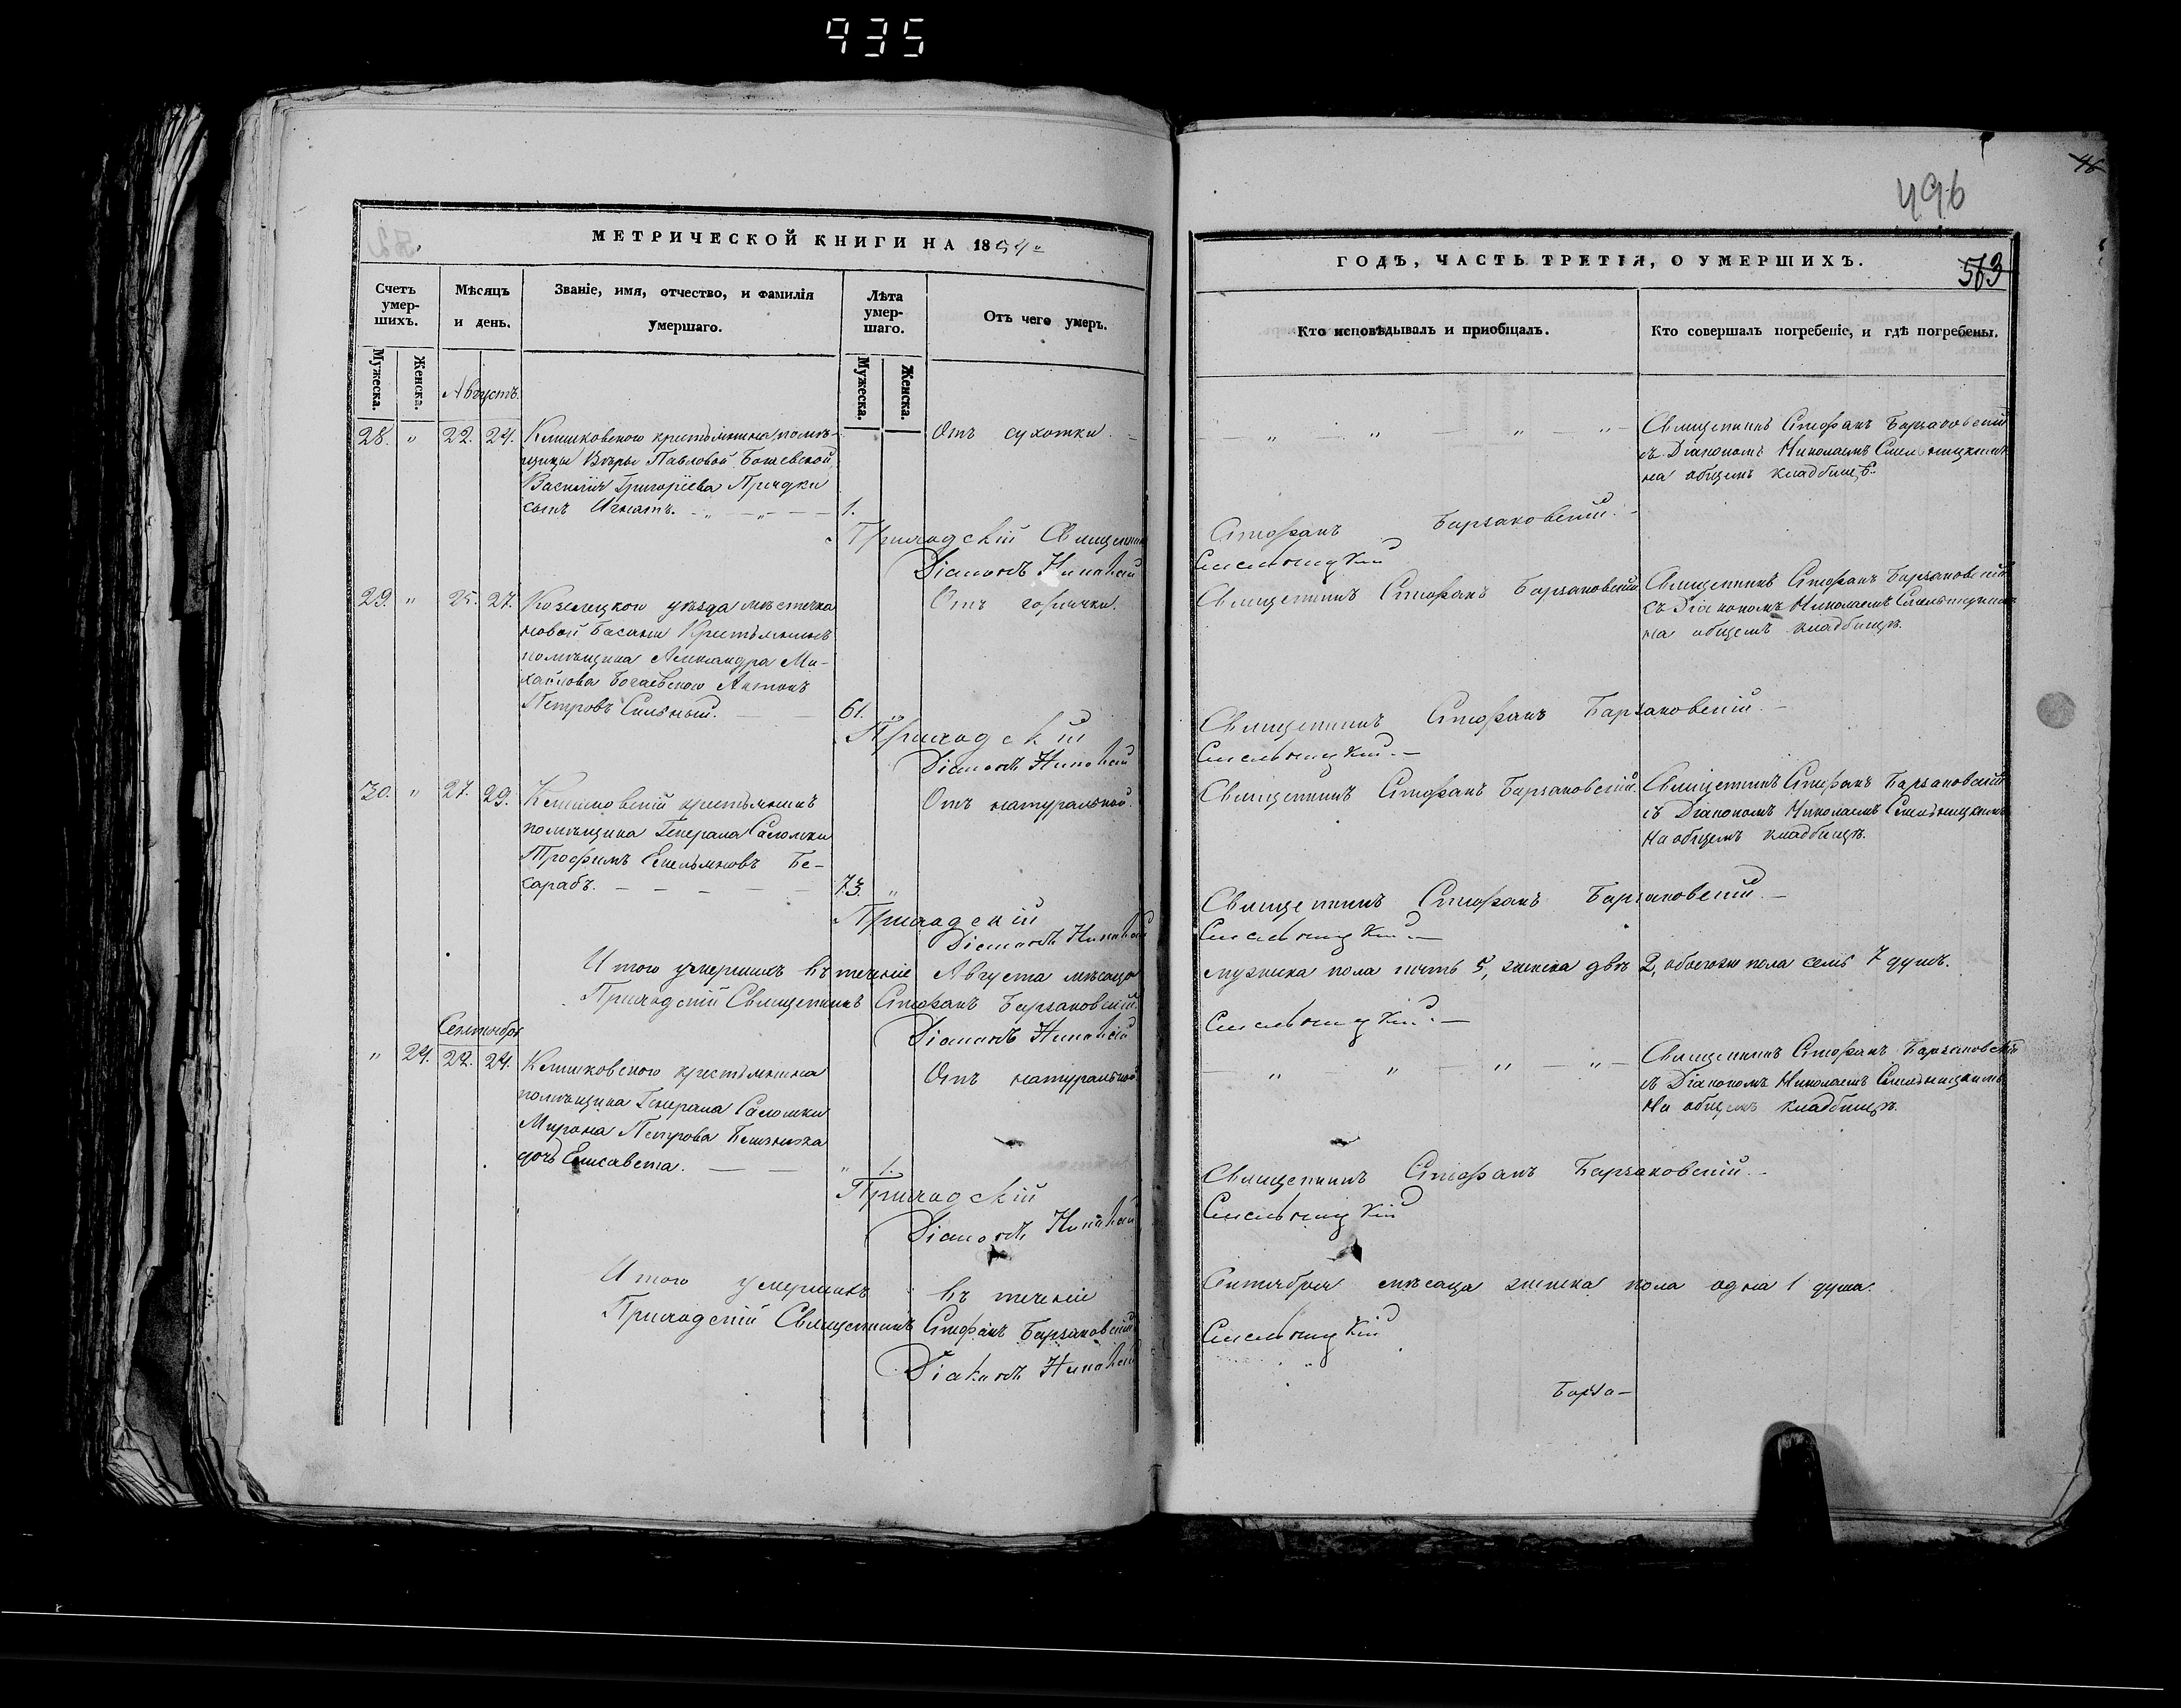 935
496
46
МЕТРИЧЕСКОЙ КНИГИ НА 1854
ГОДЪ, ЧАСТЬ ТРЕТІЯ, О УМЕРШИХЪ.
563
Счетъ умер-шихъ.
Мѣсяцъ и день.
Званіе, имя, отчество, и фамилія умершаго.
Лѣта умер-шаго.
Отъ чего умеръ.
Кто исповѣдывалъ и пріобщалъ.
Кто совершалъ погребеніе, и гдѣ погребены.
Мужеска.
Женска.
Мужеска.
Женска.
Августъ.
28. " 22. 24. Климковского крестьянина помѣ-
щицы Вѣры Павловой
Василія Григоріева Прядки
сынъ Игнатъ. 1.
Отъ сухотки.
" " " "
Священникъ Стефанъ Барзаковскій
съ Діакономъ Николаемъ Смельницкимъ
на общемъ кладбищѣ.
Приходскій Священникъ Стефанъ Барзаковскій.
Діаконъ Николай Смельницкій
29. " 25. 27. Козелецкого уѣзда мѣстечка
новой Басани Крестьянинъ
помѣщика Александра Ми-
хайлова Богаевского Антонъ
Петровъ Сильный. 61. "
Отъ горячки.
Священникъ Стефанъ Барзаковскій
Священникъ Стефанъ Барзаковскій
съ Діакономъ Николаемъ Смельницкимъ
на общемъ кладбищѣ.
Приходскій Священникъ Стефанъ Барзаковскій.
Діаконъ Николай Смельницкій.
30. " 27. 29. Климковскій крестьянинъ
помѣщика Генерала Саломки
Трофимъ Емельяновъ Бе-
сарабъ. 73. "
Отъ натуральной.
Священникъ Стефанъ Барзаковскій.
Священникъ Стефанъ Барзаковскій
съ Діакономъ Николаемъ Смельницкимъ
на общемъ кладбищѣ.
Приходскій Священникъ Стефанъ Барзаковскій.
Діаконъ Николай Смельницкій.
Итого умершихъ въ теченіе Августа мѣсяца мужеска пола пять 5, женска двѣ 2, обоего пола семь 7 душъ.
Приходскій Священникъ Стефанъ Барзаковскій.
Діаконъ Николай Смельницкій.
Сентября
" 24. 22. 24. Климковского крестьянина
помѣщика Генерала Саломки
Мирона Петрова
дочь Елисавета. " 1.
Отъ натуральной
" " " "
Священникъ Стефанъ Барзаковскій
съ Діакономъ Николаемъ Смельницкимъ
на общемъ кладбищѣ.
Приходскій Священникъ Стефанъ Барзаковскій.
Діаконъ Николай Смельницкій
Итого умершихъ въ теченіе Сентября мѣсяца женска пола одна 1 душа.
Приходскій Священникъ Стефанъ Барзаковскій
Діаконъ Николай Смельницкій
Барза-